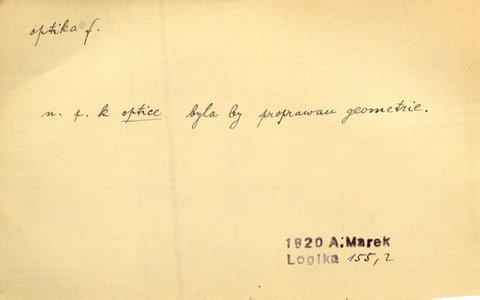 optika f.
n. p. k optice byla by proprawau geometrie.
1820 A. Marek
Logika 155,2